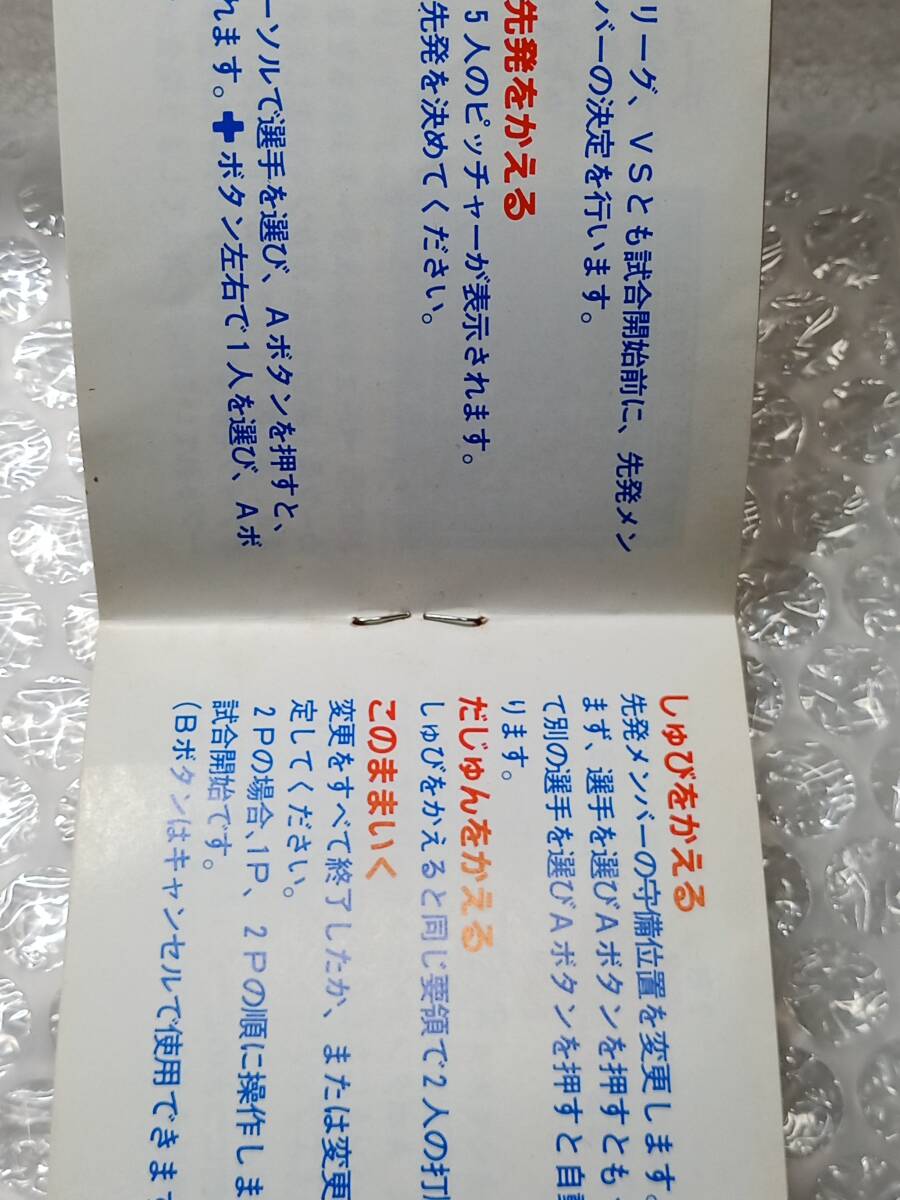 リーグ、VSとも試合開始前に、先発メン
バーの決定を行います。
先発をかえる
5人のピッチャーが表示されます。
先発を決めてください。
ーソルで選手を選び、Aボタンを押すと、
れます。✚ボタン左右で1人を選び、Aボ
しゅびをかえる
先発メンバーの守備位置を変更します。
まず、選手を選びAボタンを押すとも
て別の選手を選びAボタンを押すと自
ります。
だじゅんをかえる
しゅびをかえると同じ要領で2人の打
このままいく
変更をすべて終了したか、または変更
定してください。
2Pの場合、1P、2Pの順に操作しま
試合開始です。
(Bボタンはキャンセルで使用できます